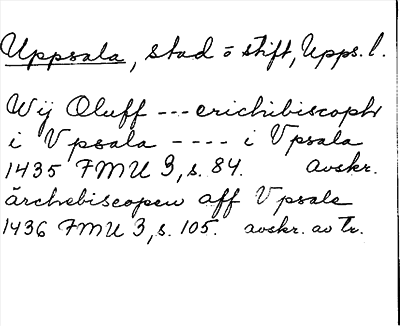 Uppsala, stad o stift, Upps. l.
Wij Oluff --- erichibiscoph
i Vpsala ---- i Vpsala
1435 FMU 3, s. 84. avskr.
ärchebiscopen aff Vpsale
1436 FMU 3, s. 105. avskr. av tr.